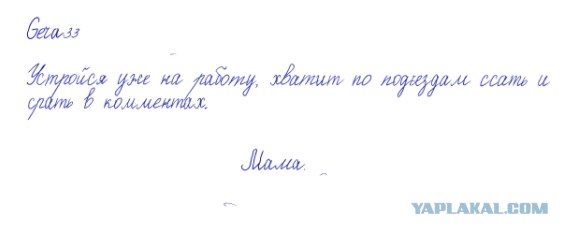 Gera33
Устройся уже на работу, хватит по подъездам ссать и
срать в комментах.
Мама.
YAPLAKAL.COM